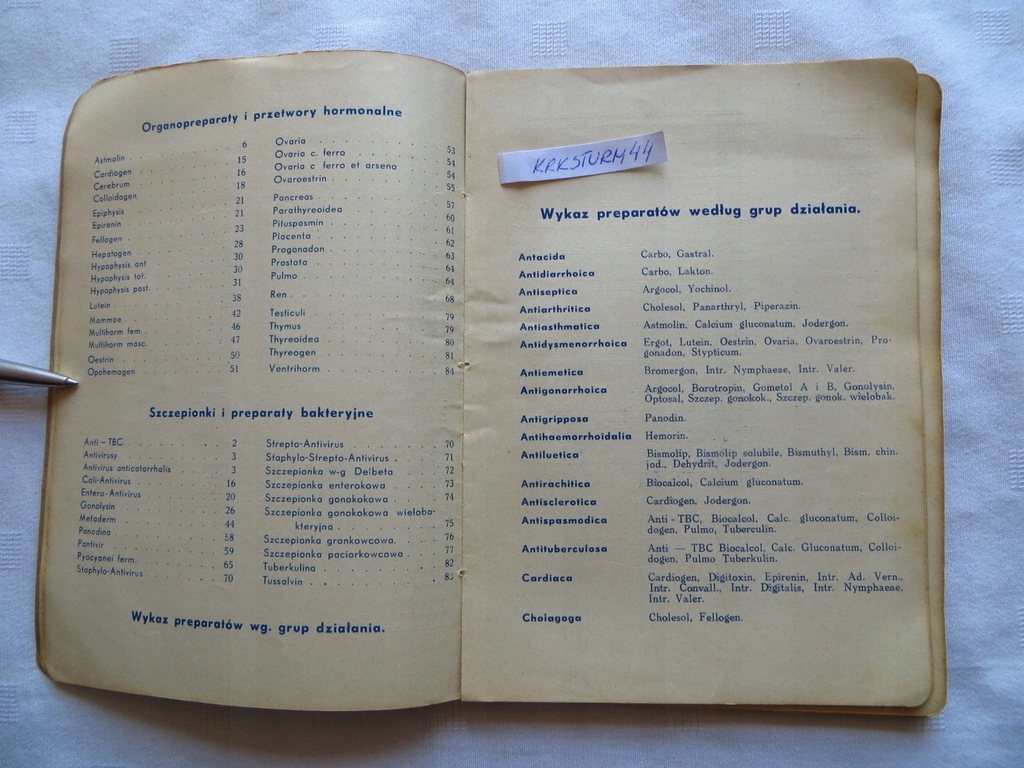 Organopreparaty i przetwory hormonalne
Astmolin . . . 6
Cardiogen . . . 15
Cerebrum . . . 16
Colloidogen . . . 18
Epiphysis . . . 21
Epirenin . . . 21
Fellogen . . . 23
Hepatogen . . . 28
Hypophysis ant. . . . 30
Hypophysis tot. . . . 30
Hypophysis post. . . . 31
Lutein . . . 38
Mammae . . . 42
Multihorm fem. . . . 46
Multihorm masc. . . . 47
Oestrin . . . 50
Opohemogen . . . 51
Ovaria . . . 53
Ovaria c. ferro . . . 54
Ovaria c ferro et arseno . . . 54
Ovaroestrin . . . 55
Pancreas . . . 57
Parathyreoidea . . . 60
Pituspasmin . . . 61
Placenta . . . 62
Progonadon . . . 63
Prostata . . . 64
Pulmo . . . 64
Ren . . . 68
Testiculi . . . 79
Thymus . . . 79
Thyreoidea . . . 80
Thyreogen . . . 81
Ventrihorm . . . 84
Szczepionki i preparaty bakteryjne
Anti – TBC. . . . 2
Antivirusy . . . 3
Antivirus anticatarrhalis . . . 3
Coli-Antivirus . . . 16
Entero-Antivirus . . . 20
Gonolysin . . . 26
Metaderm . . . 44
Panodina . . . 58
Pantivir . . . 59
Pyocyanei ferm. . . . 65
Staphylo-Antivirus . . . 70
Strepto-Antivirus . . . 70
Staphylo-Strepto-Antivirus . . . 71
Szczepionka w-g Delbeta . . . 72
Szczepionka enterokowa . . . 73
Szczepionka gonokokowa . . . 74
Szczepionka gonokokowa wieloba-
kteryjna . . . 75
Szczepionka gronkowcowa. . . . 76
Szczepionka paciorkowcowa . . . 77
Tuberkulina . . . 82
Tussalvin . . . 83
Wykaz preparatów wg. grup działania.
KRKSTURM44
Wykaz preparatów według grup działania.
Antacida Carbo, Gastral.
Antidiarrhoica Carbo, Lakton.
Antiseptica Argocol, Yochinol.
Antiarthritica Cholesol, Panarthryl, Piperazin.
Antiasthmatica Astmolin, Calcium gluconatum, Jodergon.
Antidysmenorrhoica Ergot, Lutein, Oestrin, Ovaria, Ovaroestrin, Pro-
gonadon, Stypticum.
Antiemetica Bromergon, Intr. Nymphaeae, Intr. Valer.
Antigonorrhoica Argocol, Borotropin, Gometol A i B, Gonolysin,
Optosal, Szczep. gonokok., Szczep. gonok. wielobak.
Antigripposa Panodin.
Antihaemorrhoidalia Hemorin.
Antiluetica Bismolip, Bismolip solubile, Bismuthyl, Bism. chin.
jod., Dehydrit, Jodergon.
Antirachitica Biocalcol, Calcium gluconatum.
Antisclerotica Cardiogen, Jodergon.
Antispasmodica Anti - TBC, Biocalcol, Calc. gluconatum, Colloi-
dogen, Pulmo, Tuberculin.
Antituberculosa Anti — TBC Biocalcol, Calc. Gluconatum, Colloi-
dogen, Pulmo Tuberkulin.
Cardiaca Cardiogen, Digitoxin, Epirenin, Intr. Ad. Vern.,
Intr. Convall., Intr. Digitalis, Intr. Nymphaeae,
Intr. Valer.
Cholagoga Cholesol, Fellogen.